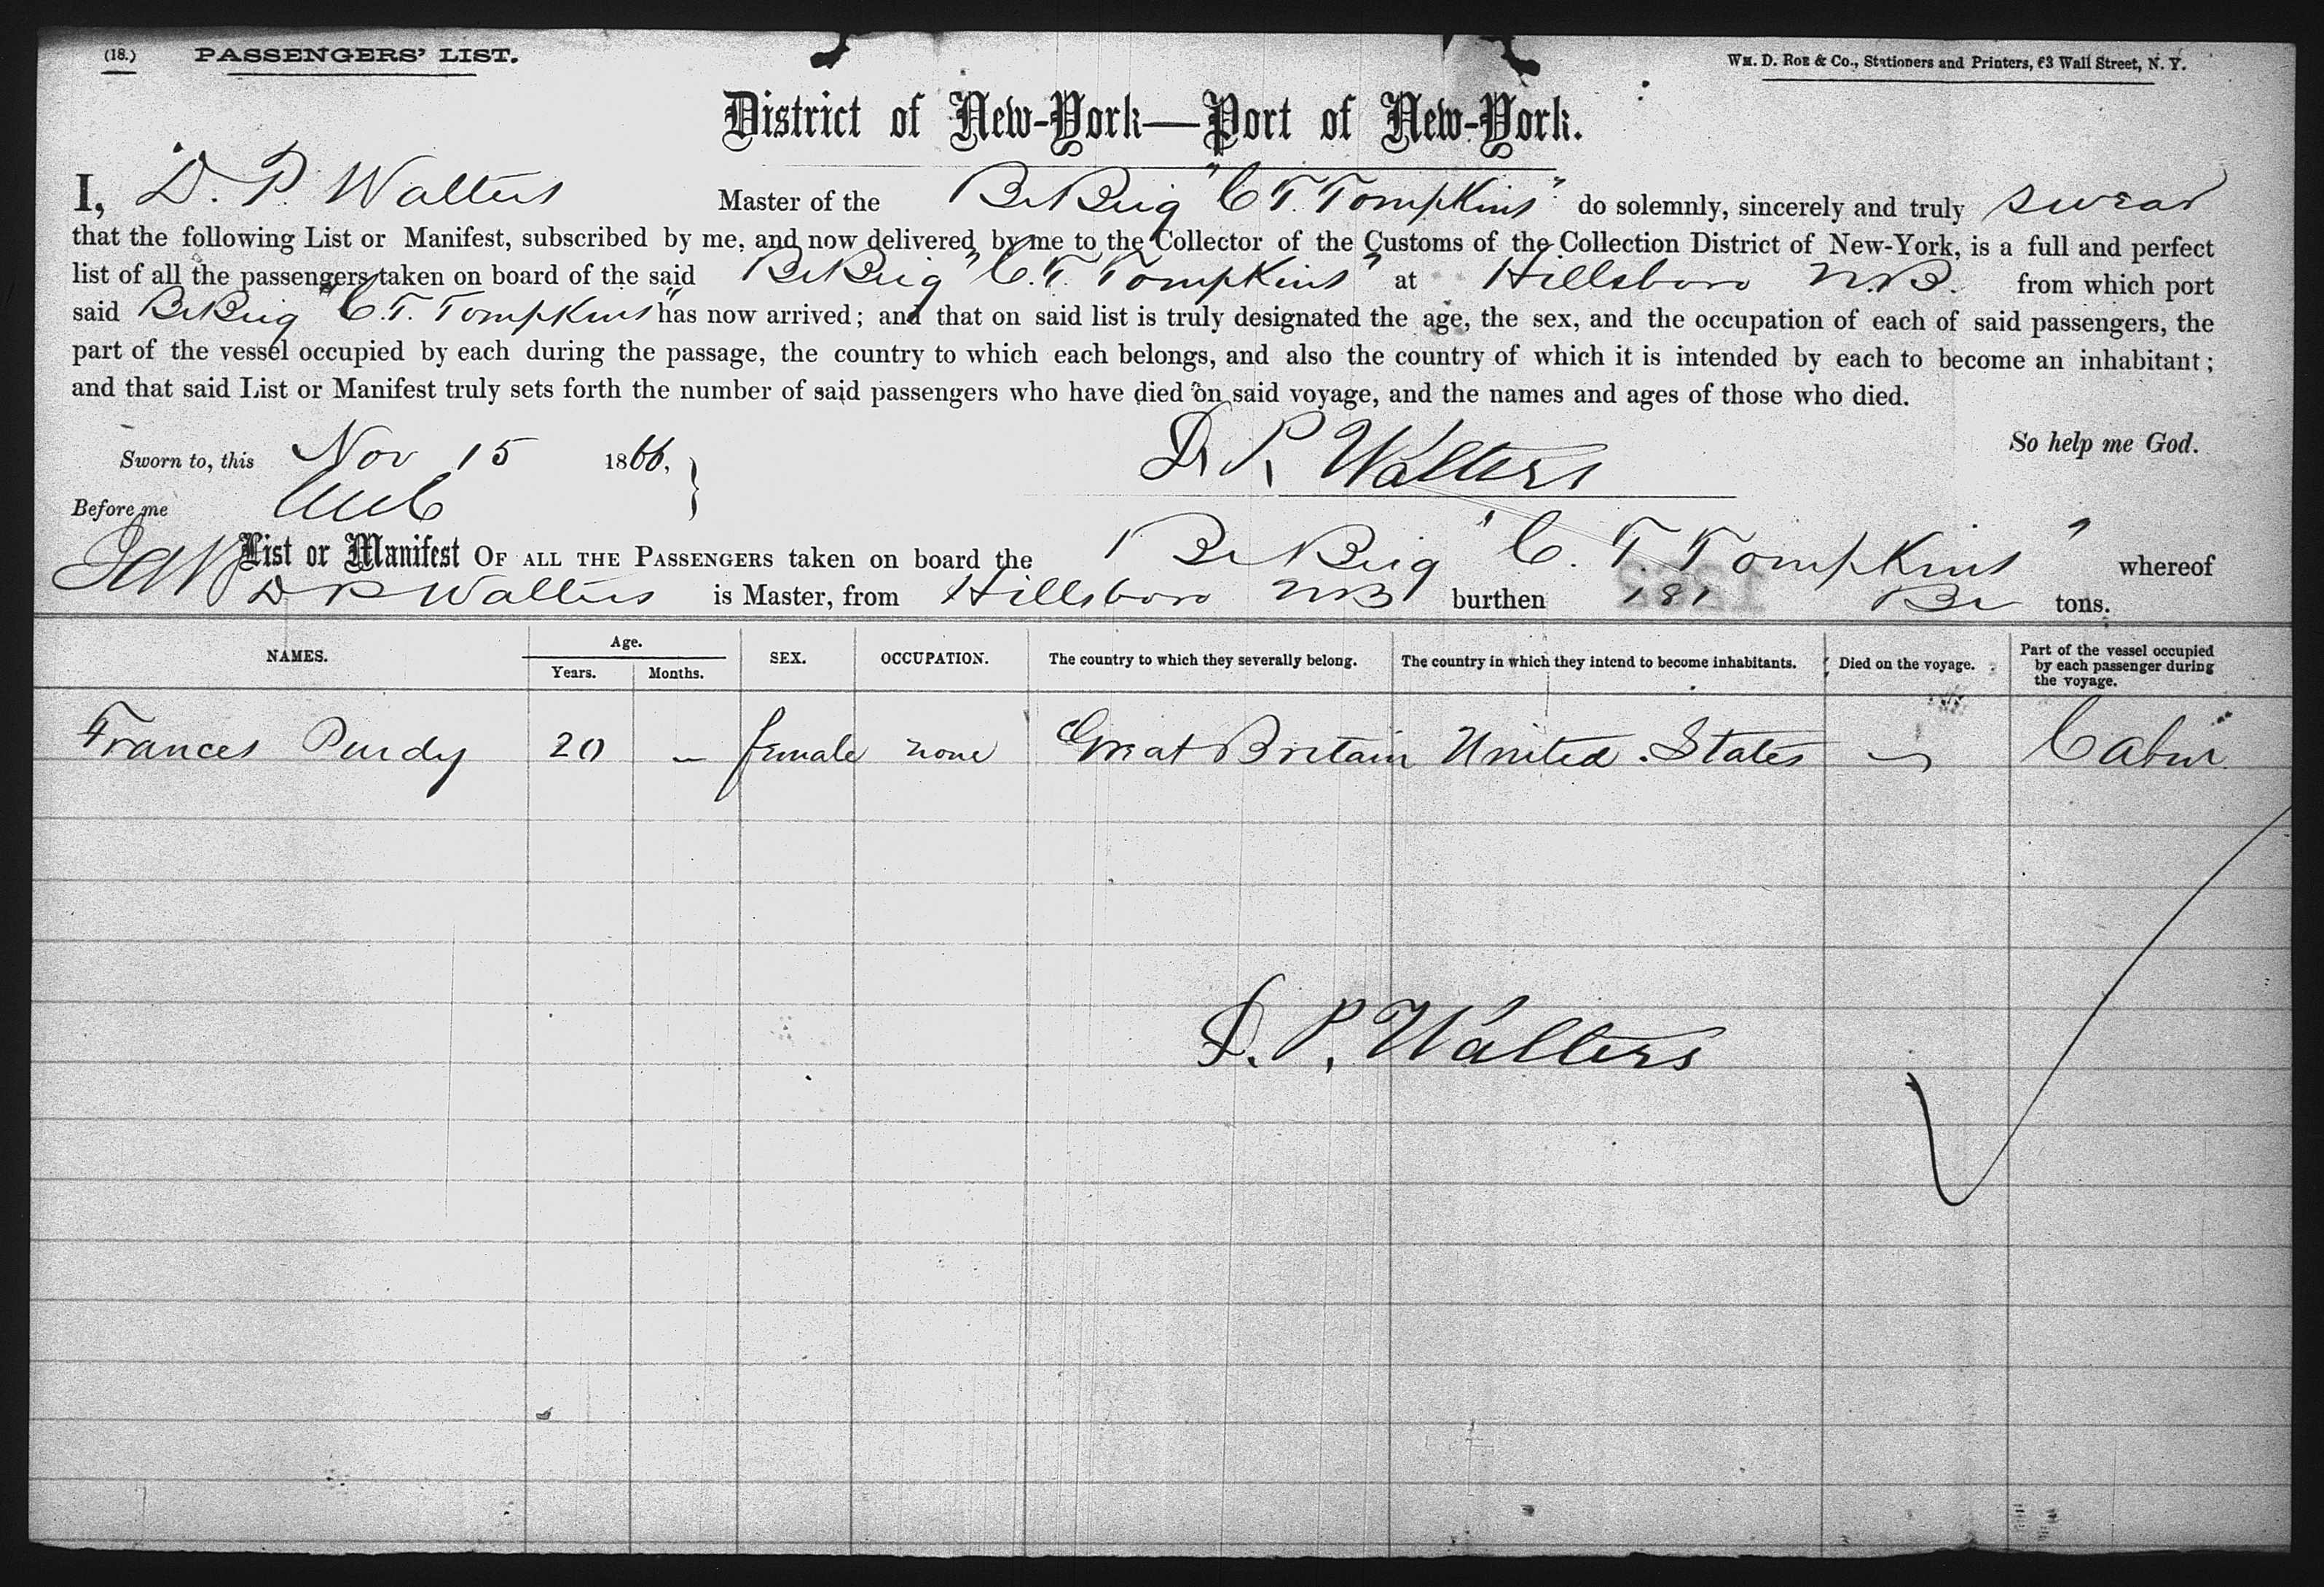 (18.) PASSENGERS' LIST. WM. D. ROE & Co., Stationers and Printers, 63 Wall Street, N. Y.
District of New-York—Port of New-York.
I, D. P. Walters Master of the Br Brig "C. T. Tompkins" do solemnly, sincerely and truly swear
that the following List or Manifest, subscribed by me, and now delivered by me to the Collector of the Customs of the Collection District of New-York, is a full and perfect
list of all the passengers taken on board of the said Br Brig "C. T. Tompkins" at Hillsboro N.B. from which port
said Br Brig "C. T. Tompkins" has now arrived; and that on said list is truly designated the age, the sex, and the occupation of each of said passengers, the
part of the vessel occupied by each during the passage, the country to which each belongs, and also the country of which it is intended by each to become an inhabitant;
and that said List or Manifest truly sets forth the number of said passengers who have died on said voyage, and the names and ages of those who died.
So help me God.
Sworn to, this Nov 15 1866, D. P. Walters
Before me
List or Manifest OF ALL THE PASSENGERS taken on board the Br Brig "C. T. Tompkins" whereof
D P Walters is Master, from Hillsboro NB burthen 181 Br tons.
NAMES. Age. Years. Months. SEX. OCCUPATION. The country to which they severally belong. The country in which they intend to become inhabitants. Died on the voyage. Part of the vessel occupied by each passenger during the voyage.
Frances Purdy 20 – female none Great Britain United States – Cabin
D. P. Walters